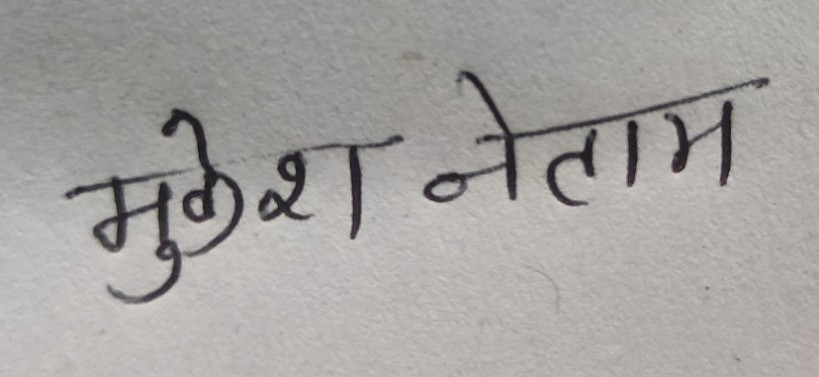 मुकेश नेताम